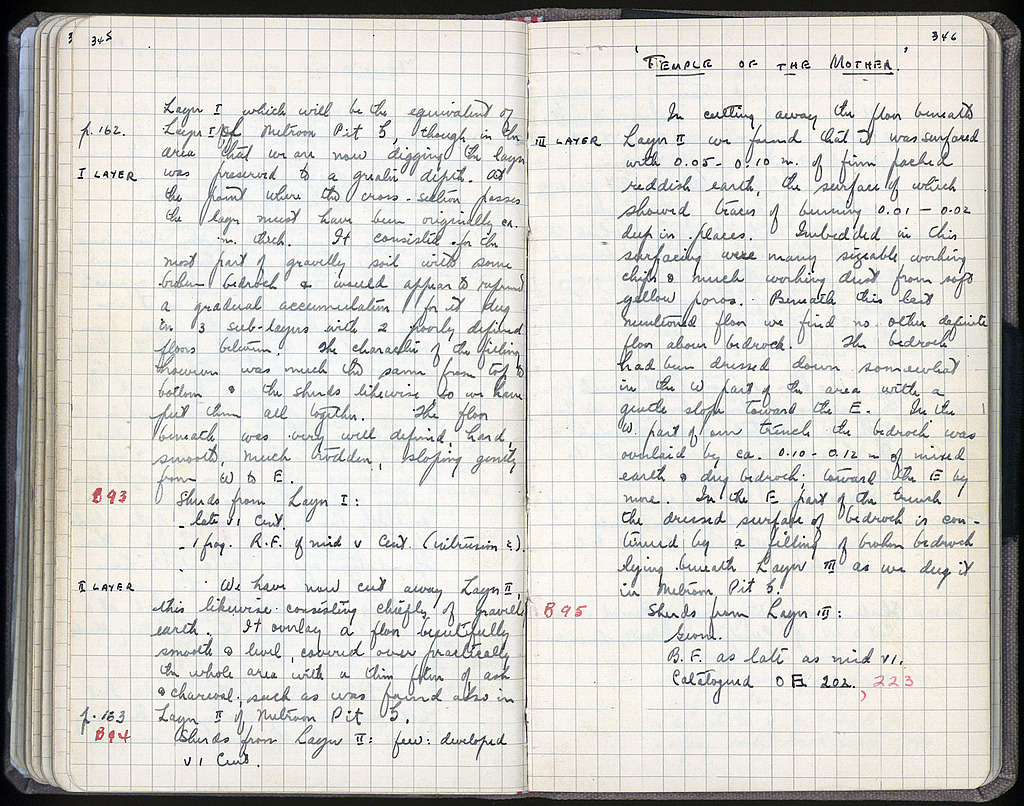 345
Layer I which will be the equivalent of
p. 162. Layer I of Metroon Pit 5, though in the
area that we are now digging the layer
I LAYER was preserved to a greater depth. At
the point where the cross-section passes
the layer must have been originally ca.
m. thick. It consisted for the
most part of gravelly soil with some
broken bedrock & would appear to represent
a gradual accumulation for it dug
in 3 sub-layers with 2 poorly defined
floors between. The character of the filling
however was much the same from top to
bottom & the sherds likewise so we have
put them all together. The floor
beneath was very well defined, hard,
smooth, much trodden, sloping gently
from W to E.
B93 Sherds from Layer I:
- late VI Cent.
- 1 frag. R.F. of mid V Cent. (intrusion
II LAYER We have now cut away Layer II,
this likewise consisting chiefly of gravelly
earth. It overlay a floor beautifully
smooth & level, covered over practically
the whole area with a thin film of ash
& charcoal, such as was found also in
p. 163 Layer II of Metroon Pit 5.
B94 Sherds from Layer II: few: developed
VI Cent.
346
'TEMPLE OF THE MOTHER'
In cutting away the floor beneath
III LAYER Layer II we found that it was surfaced
with 0.05 - 0.10 m. of firm packed
reddish earth, the surface of which
showed traces of burning 0.01 - 0.02
deep in places. Imbedded in this
surfacing were many sizeable working
chips & much working dust from soft
yellow poros. Beneath this last
mentioned floor we find no other definite
floor above bedrock. The bedrock
had been dressed down somewhat
in the W part of the area with a
gentle slope toward the E. In the
W. part of our trench the bedrock was
overlaid by ca. 0.10 - 0.12 m of mixed
earth & dug bedrock; toward the E by
more. In the E part of the trench
the dressed surface of bedrock is con-
tinued by a filling of broken bedrock
lying beneath Layer III as we dug it
in Metroon Pit 5.
B95 Sherds from Layer III:
Geom.
B.F. as late as mid VI.
Catalogued OE 202, 223